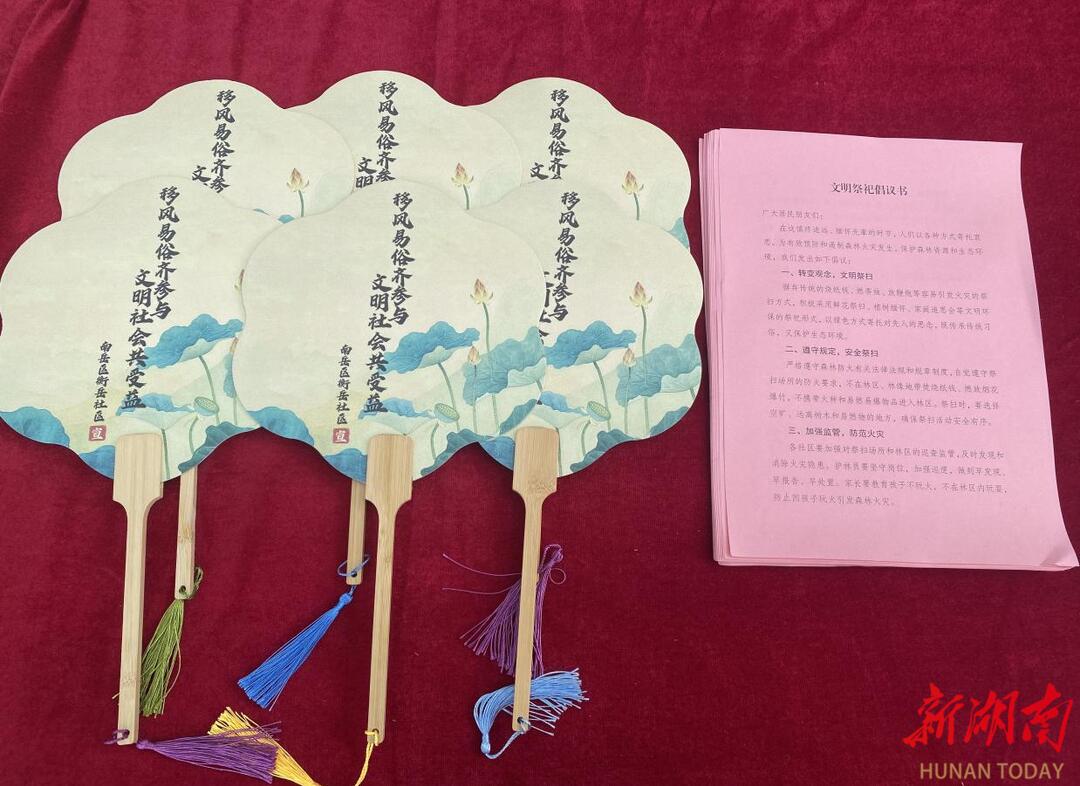 移风易俗齐参
文
移风易俗齐参
文明
移风易俗齐参
文
移风易俗齐参与
文明社会共受益
南岳区衡岳社区
宣
移风易俗齐参与
文明社会共受益
南岳区衡岳社区
宣
移风易俗齐参与
文明祭祀倡议书
广大居民朋友们：
在这慎终追远、缅怀先辈的时节，人们以各种方式寄托哀
思，为有效预防和遏制森林火灾发生，保护森林资源和生态环
境，我们发出如下倡议：
一、转变观念，文明祭扫
摒弃传统的烧纸钱、燃香烛、放鞭炮等容易引发火灾的祭
扫方式，积极采用鲜花祭扫、植树缅怀、家庭追思会等文明环
保的祭祀形式，以绿色方式寄托对先人的思念，既传承传统习
俗，又保护生态环境。
二、遵守规定，安全祭扫
严格遵守森林防火有关法律法规和规章制度，自觉遵守祭
扫场所的防火要求，不在林区、林缘地带焚烧纸钱、燃放烟花
爆竹，不携带火种和易燃易爆物品进入林区。祭扫时，要选择
空旷、远离树木和易燃物的地方，确保祭扫活动安全有序。
三、加强监管，防范火灾
各社区要加强对祭扫场所和林区的巡查监管，及时发现和
消除火灾隐患。护林员要坚守岗位，加强巡逻，做到早发现、
早报告、早处置。家长要教育孩子不玩火，不在林区内玩耍，
防止因孩子玩火引发森林火灾。
新湖南
HUNAN TODAY